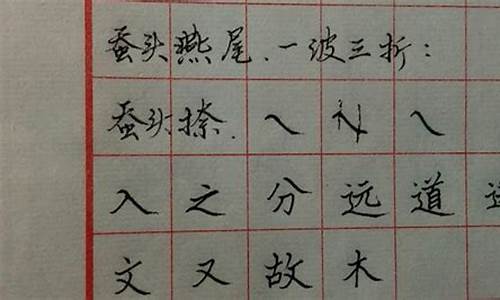 蚕头燕尾.一波三折:
蚕头捺.
入之分远道
文又故木